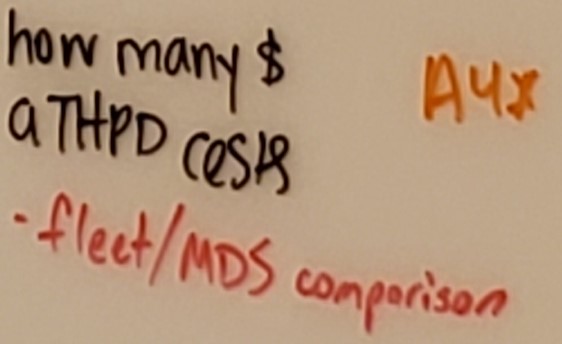 how many $
a THPD costs
- fleet/MDS comparison